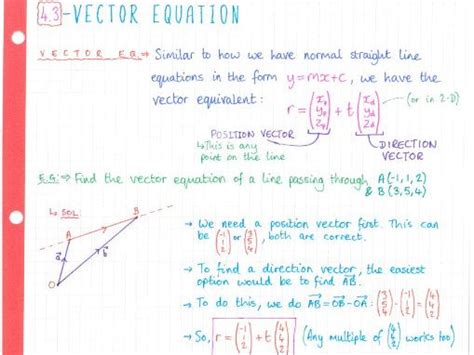 4.3 - VECTOR EQUATION
VECTOR EQ. ⇒ Similar to how we have normal straight line
equations in the form y=mx+c, we have the
vector equivalent: r = (x₁ y₁ z₁) + t (x₂ y₂ z₂) (or in 2-D)
POSITION VECTOR
↳ This is any
point on the line
DIRECTION
VECTOR
E.G. ⇒ Find the vector equation of a line passing through A(-1,1,2)
& B(3,5,4)
↳ SOL
A
B
a
b
O
→ We need a position vector first. This can
be (-1 1 2) or (3 5 4), both are correct.
→ To find a direction vector, the easiest
option would be to find AB.
→ To do this, we do AB = OB - OA : (3 5 4) - (-1 1 2) = (4 4 2)
→ So, r = (-1 1 2) + t (4 4 2) (Any multiple of (4 4 2) works too)